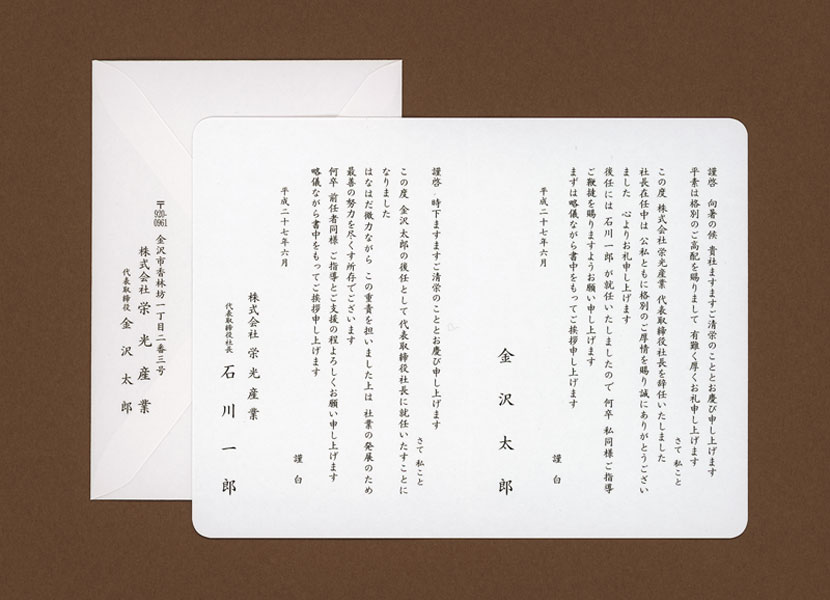 謹啓　向暑の候 貴社ますますご清栄のこととお慶び申し上げます
平素は格別のご高配を賜りまして 有難く厚くお礼申し上げます
さて 私こと
この度 株式会社 栄光産業 代表取締役社長を辞任いたしました
社長在任中は 公私ともに格別のご厚情を賜り誠にありがとうござい
ました　心よりお礼申し上げます
後任には 石川一郎 が就任いたしましたので 何卒 私同様ご指導
ご鞭撻を賜りますようお願い申し上げます
まずは略儀ながら書中をもってご挨拶申し上げます
謹白
平成二十七年六月
金沢太郎
謹啓　時下ますますご清栄のこととお慶び申し上げます
さて 私こと
この度 金沢太郎の後任として 代表取締役社長に就任いたすことに
なりました
はなはだ微力ながら この重責を担いました上は 社業の発展のため
最善の努力を尽くす所存でございます
何卒 前任者同様 ご指導とご支援の程よろしくお願い申し上げます
略儀ながら書中をもってご挨拶申し上げます
謹白
平成二十七年六月
株式会社 栄光産業
代表取締役社長 石川一郎
〒920-0961 金沢市香林坊一丁目二番三号
株式会社 栄光産業
代表取締役 金沢太郎